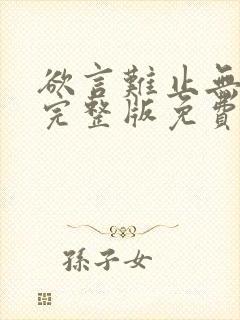 欲言難止無
完整版免費
孫子女